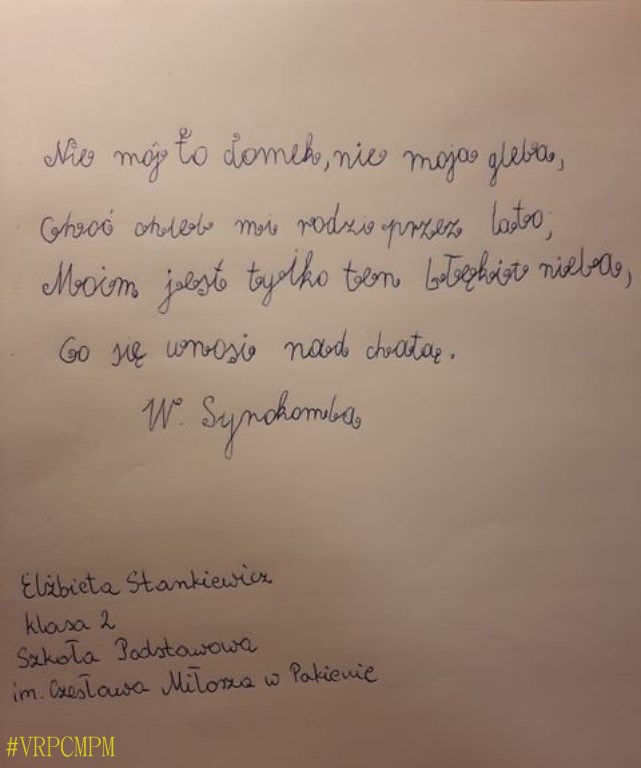 Nie mój to domek, nie moja gleba,
Choć chleb mi rodzi przez lato;
Moim jest tylko ten błękit nieba,
Co się wnosi nad chatą.
W. Syrokomla
Elżbieta Stankiewicz
klasa 2
Szkoła Podstawowa
im. Czesława Miłosza w Pakienie
#VRPCMPM